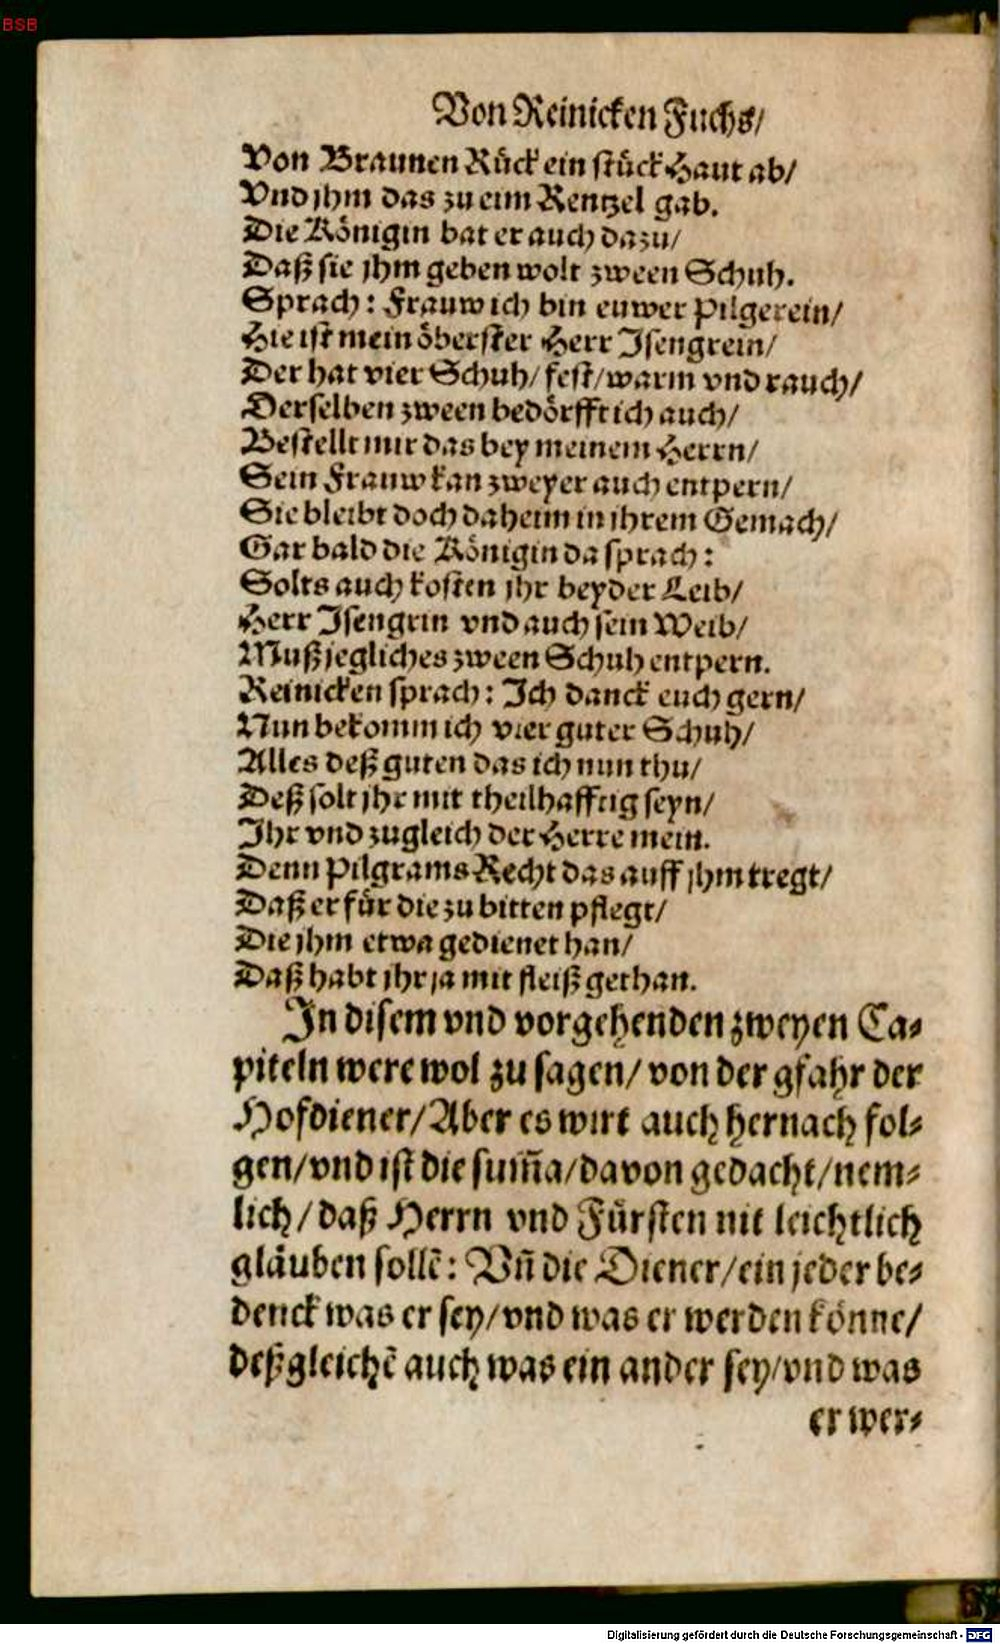 BSB
Von Reinicken Fuchs/
Von Braunen Rück ein stück Haut ab/
Vnd jhm das zu eim Rentzel gab.
Die Königin bat er auch dazu/
Daß sie jhm geben wolt zween Schuh.
Sprach: Frauw ich bin euwer Pilgerein/
Hie ist mein öberster Herr Jsengrein/
Der hat vier Schuh/ fest/ warm vnd rauch/
Derselben zween bedörfft ich auch/
Bestellt mir das bey meinem Herrn/
Sein Frauw kan zweyer auch entpern/
Sie bleibt doch daheim in jhrem Gemach/
Gar bald die Königin da sprach:
Solts auch kosten jhr beyder Leib/
Herr Jsengrin vnd auch sein Weib/
Muß jegliches zween Schuh entpern.
Reinicken sprach: Ich danck euch gern/
Nun bekomm ich vier guter Schuh/
Alles deß guten das ich nun thu/
Deß solt jhr mit theilhafftig seyn/
Ihr vnd zugleich der Herre mein.
Denn Pilgrams Recht das auff jhm tregt/
Daß er für die zu bitten pflegt/
Die jhm etwa gedienet han/
Daß habt jhr ja mit fleiß gethan.
In disem vnd vorgehenden zweyen Ca⸗
piteln were wol zu sagen/ von der gfahr der
Hofdiener/ Aber es wirt auch hernach fol⸗
gen/ vnd ist die sum̃a/ davon gedacht/ nem⸗
lich/ daß Herrn vnd Fürsten nit leichtlich
gläuben sollẽ: Vñ die Diener/ ein jeder be⸗
denck was er sey/ vnd was er werden könne/
deßgleichẽ auch was ein ander sey/ vnd was
er wer⸗
Digitalisierung gefördert durch die Deutsche Forschungsgemeinschaft - DFG